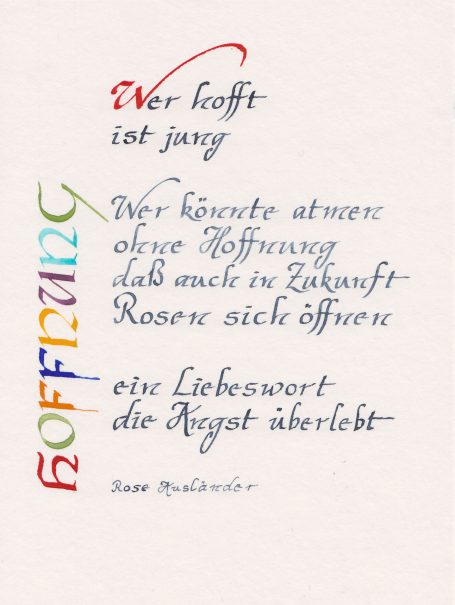 Wer hofft
ist jung
Wer könnte atmen
ohne Hoffnung
daß auch in Zukunft
Rosen sich öffnen
ein Liebeswort
die Angst überlebt
Rose Ausländer
HOFFNUNG